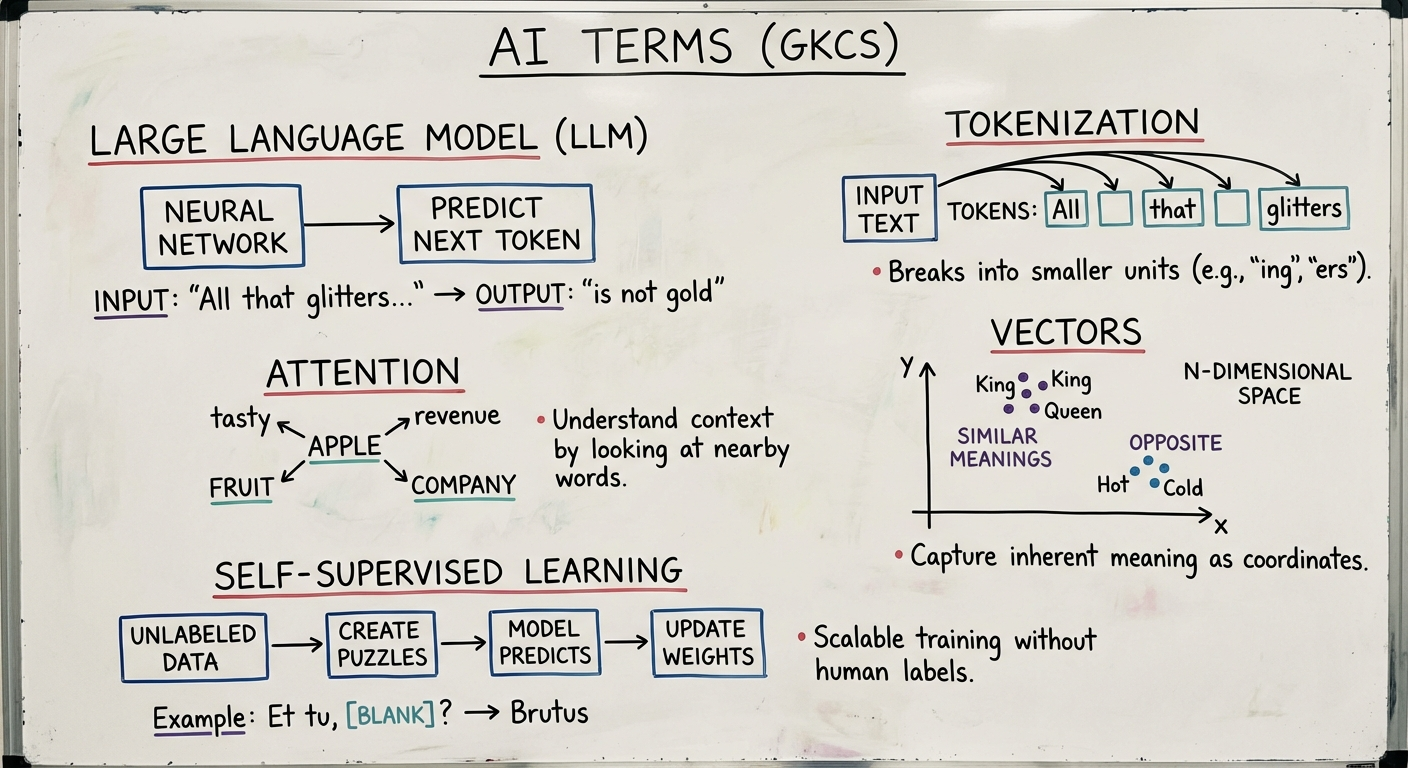 AI TERMS (GKCS)
LARGE LANGUAGE MODEL (LLM)
NEURAL
NETWORK
PREDICT
NEXT TOKEN
INPUT: “All that glitters...” → OUTPUT: “is not gold”
TOKENIZATION
INPUT
TEXT
TOKENS: All that glitters
• Breaks into smaller units (e.g., “ing”, “ers”).
ATTENTION
tasty
revenue
APPLE
FRUIT
COMPANY
• Understand context
by looking at nearby
words.
VECTORS
Y
King
King
Queen
SIMILAR
MEANINGS
N-DIMENSIONAL
SPACE
OPPOSITE
Hot
Cold
X
• Capture inherent meaning as coordinates.
SELF-SUPERVISED LEARNING
UNLABELED
DATA
CREATE
PUZZLES
MODEL
PREDICTS
UPDATE
WEIGHTS
• Scalable training without
human labels.
Example: Et tu, [BLANK]? → Brutus